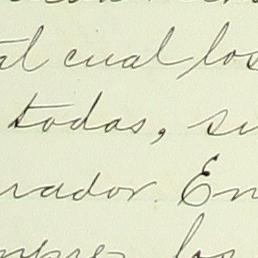 al cual los
todas, su
rador. En
los